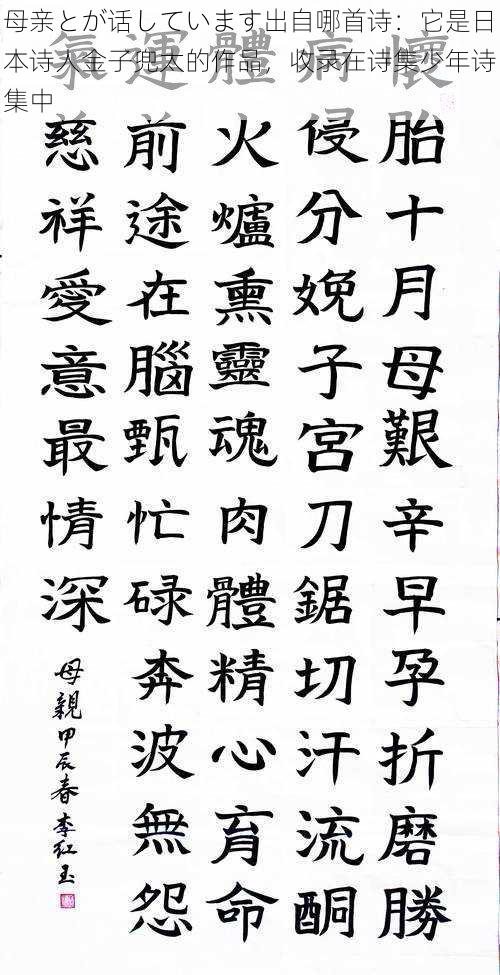 母亲とが话しています出自哪首诗：它是日
本诗人金子兜太的作品，收录在诗集少年诗
集中
懷胎十月母艱辛早孕折磨勝
病侵分娩子宮刀鋸切汗流酮
體火爐熏靈魂肉體精心育命
運前途在腦甄忙碌奔波無怨
氣慈祥愛意最情深
母親甲辰春李红玉